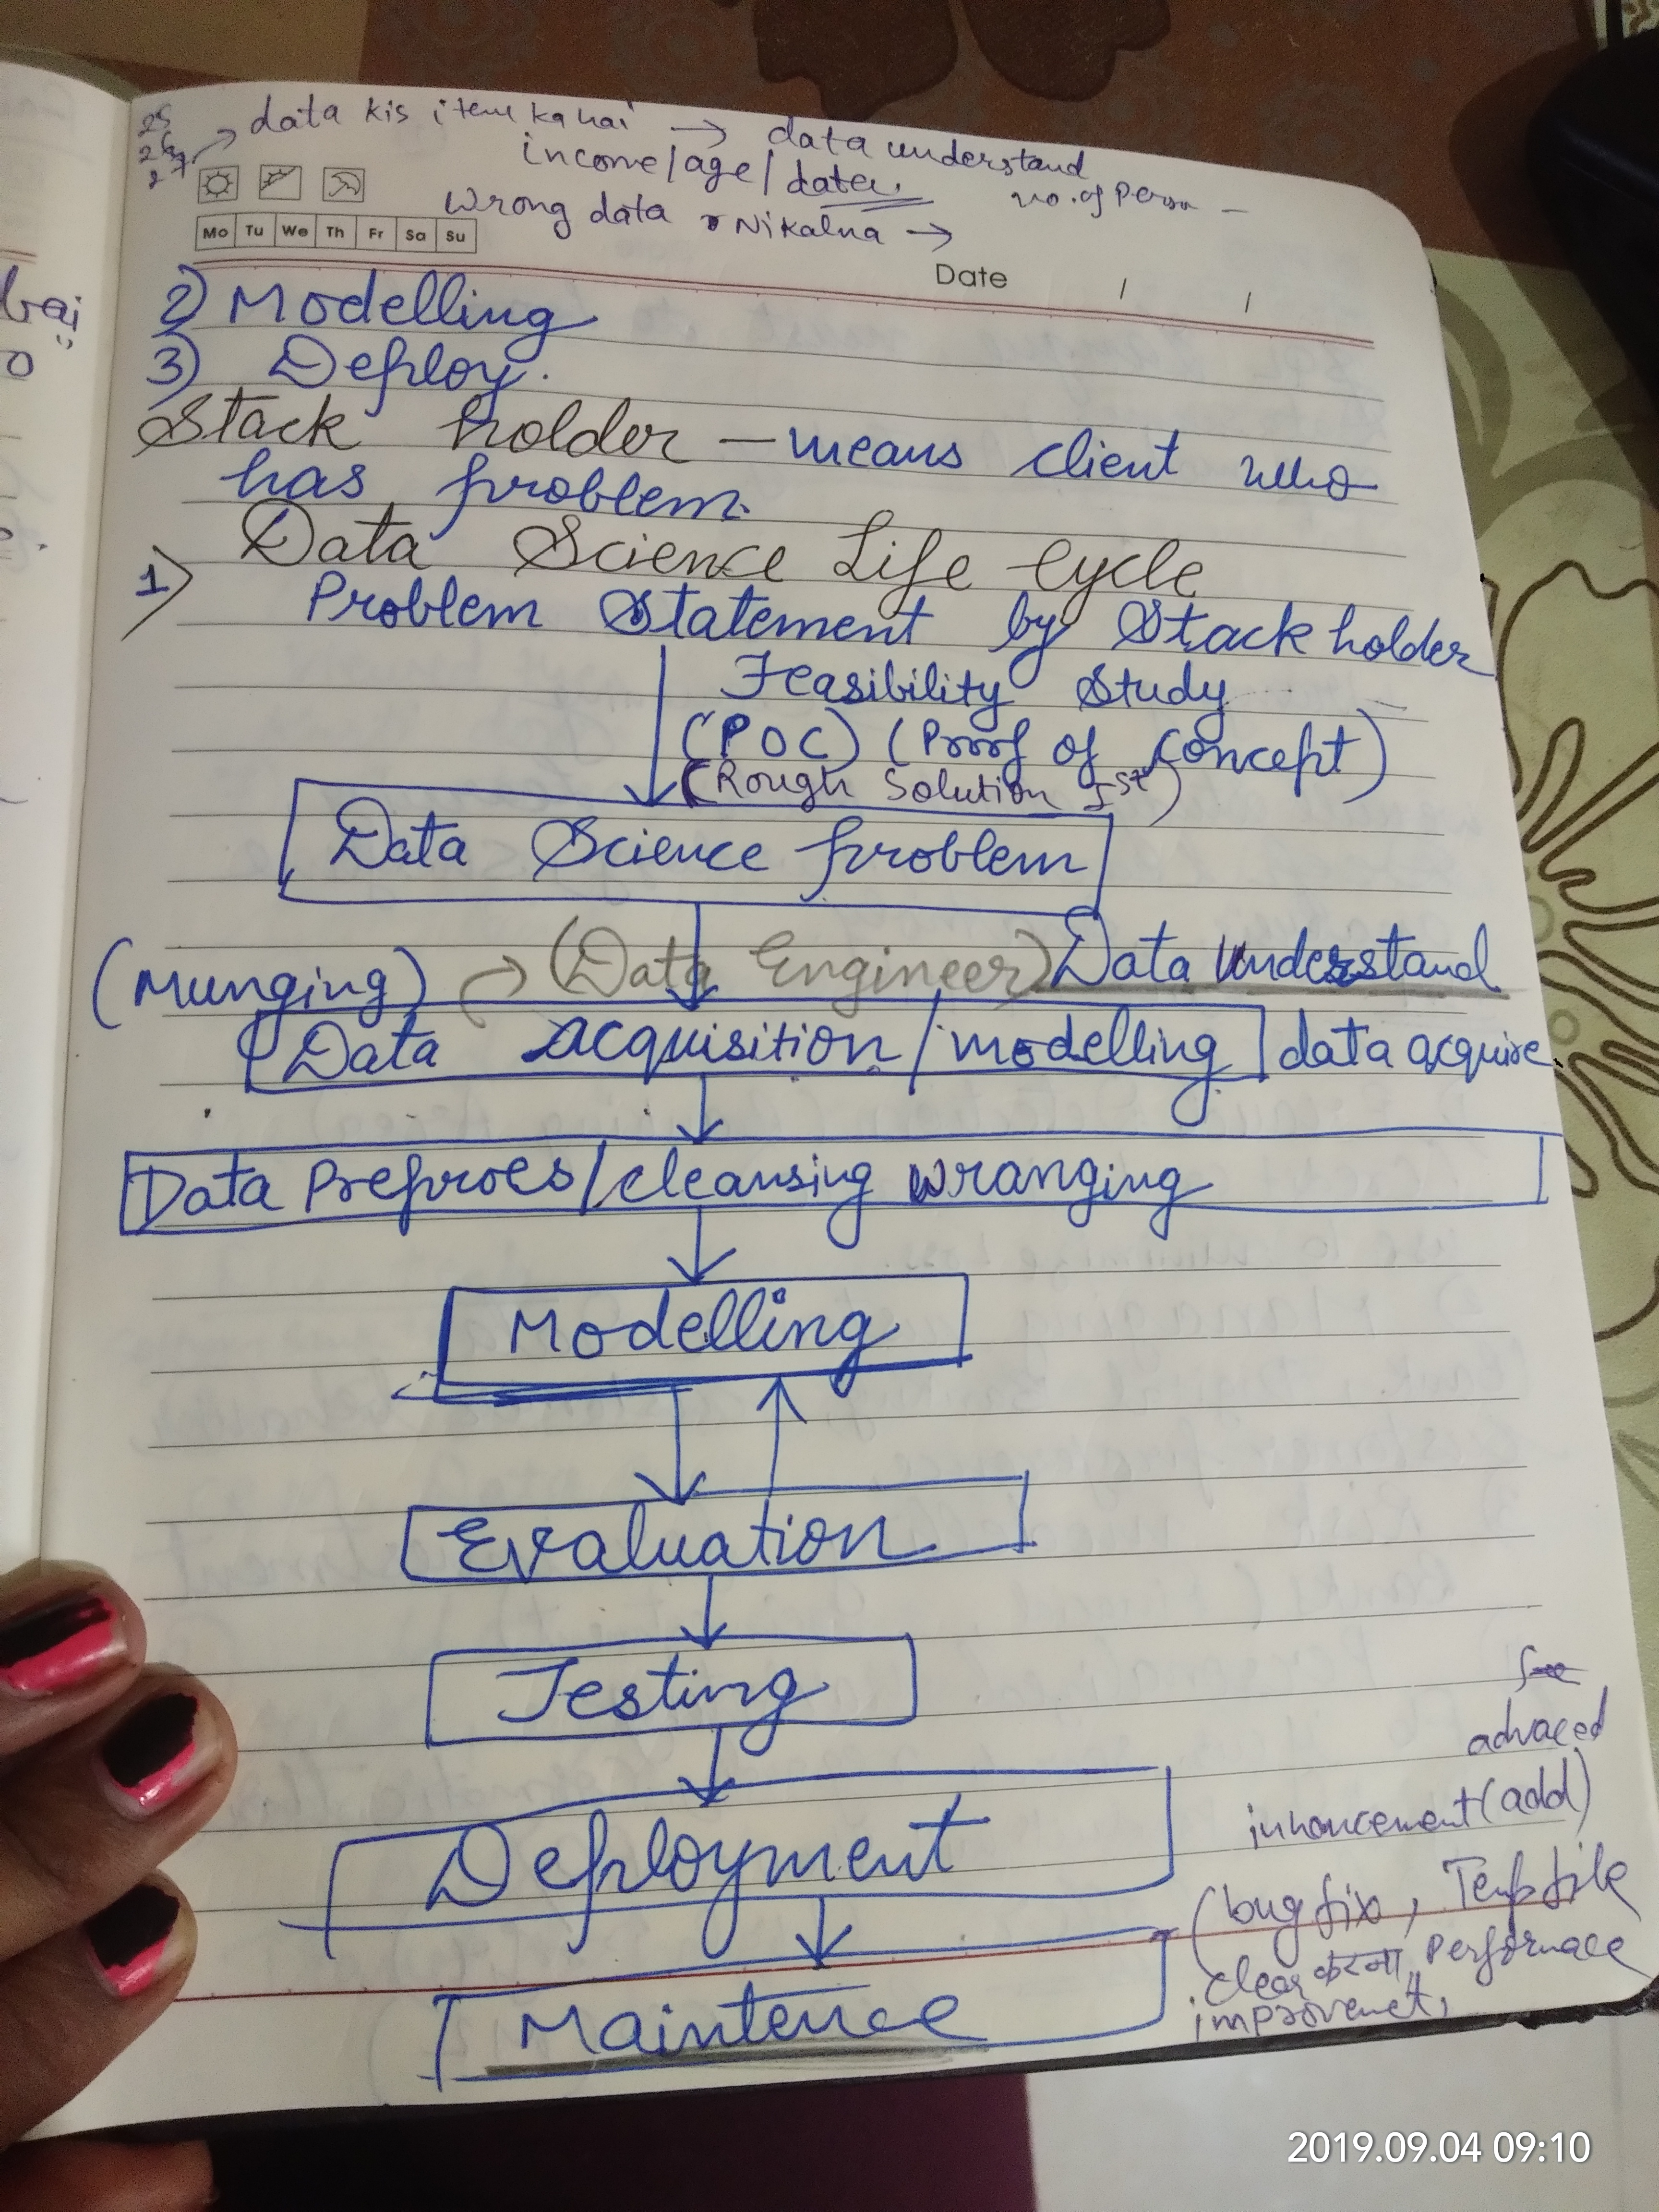 25
26
27
data kis item ka hai → data understand
income/age/data. no. of Person -
Wrong data Nikalna →
Mo Tu We Th Fr Sa Su
Date / /
2) Modelling
3) Deploy.
Stack holder — means client who
has problem.
Data Science Life Cycle
1> Problem Statement by Stack holder
Feasibility Study
(POC) (Proof of Concept)
(Rough Solution Ist)
Data Science problem
(Munging) → (Data Engineer) Data Understand
Data acquisition/modelling data acquire
Data Preproes/cleansing wranging
Modelling
Evaluation
Testing
advaced
Deployment
inhancement (add)
(bug fix, Temp file
clear करना, Performace
improvemet,
Maintence
2019.09.04 09:10